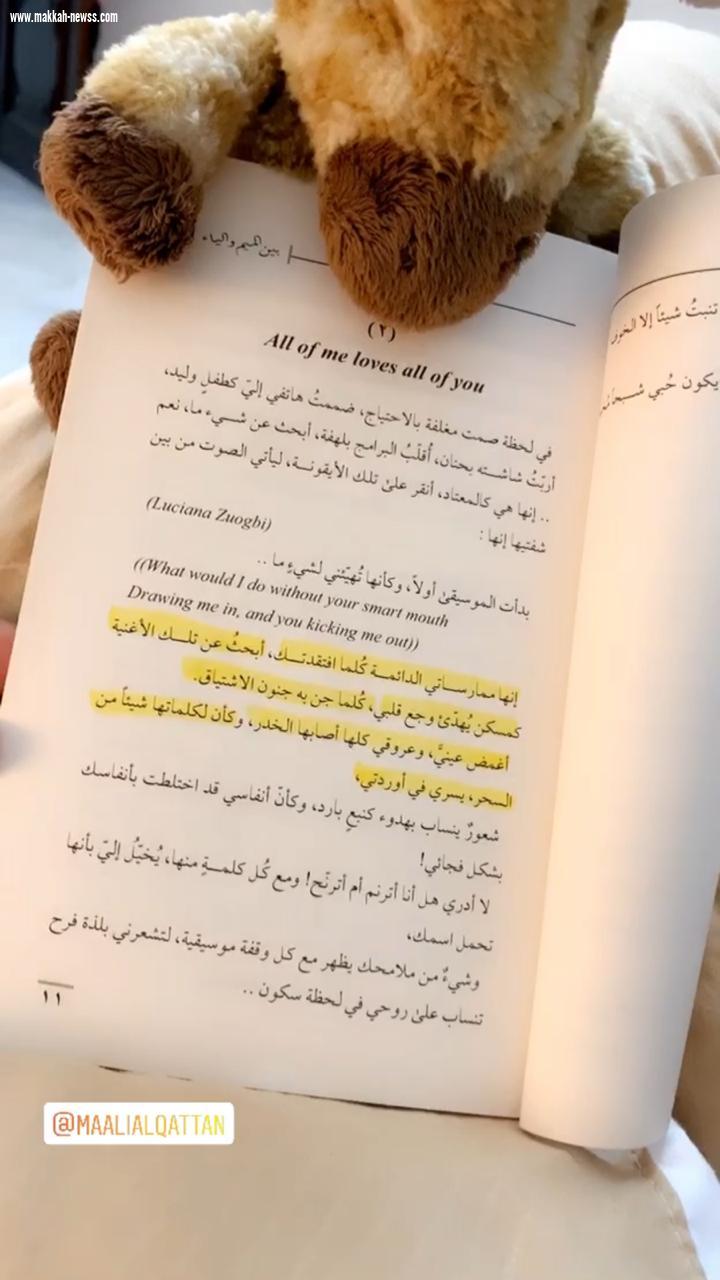 www.makkah-newss.com
بين الميم والياء
(٢)
All of me loves all of you
في لحظة صمت مغلفة بالاحتياج، ضممتُ هاتفي إليّ كطفلٍ وليد،
أربّتُ شاشته بحنان، أُقلّبُ البرامج بلهفة، أبحث عن شيء ما، نعم
.. إنها هي كالمعتاد، أنقر على تلك الأيقونة، ليأتي الصوت من بين
شفتيها إنها :
(Luciana Zuogbi)
بدأت الموسيقى أولاً، وكأنها تُهيّئني لشيءٍ ما ..
((What would I do without your smart mouth
Drawing me in, and you kicking me out))
إنها ممارساتي الدائمة كُلما افتقدتك، أبحثُ عن تلك الأغنية
كمسكن يُهدّئ وجع قلبي، كُلما جن به جنون الاشتياق.
أغمض عينيَّ، وعروقي كلها أصابها الخدر، وكأن لكلماتها شيئاً من
السحر، يسري في أوردتي،
شعورٌ ينساب بهدوء كنبعٍ بارد، وكأنّ أنفاسي قد اختلطت بأنفاسك
بشكل فجائي!
لا أدري هل أنا أترنم أم أترنّح! ومع كُل كلمةٍ منها، يُخيّلُ إليّ بأنها
تحمل اسمك،
وشيءٌ من ملامحك يظهر مع كل وقفة موسيقية، لتشعرني بلذة فرح
تنساب على روحي في لحظة سكون ..
١١
تنبتُ شيئاً إلا الخوف
يكون حُبي شبحاً
@MAALIALQATTAN